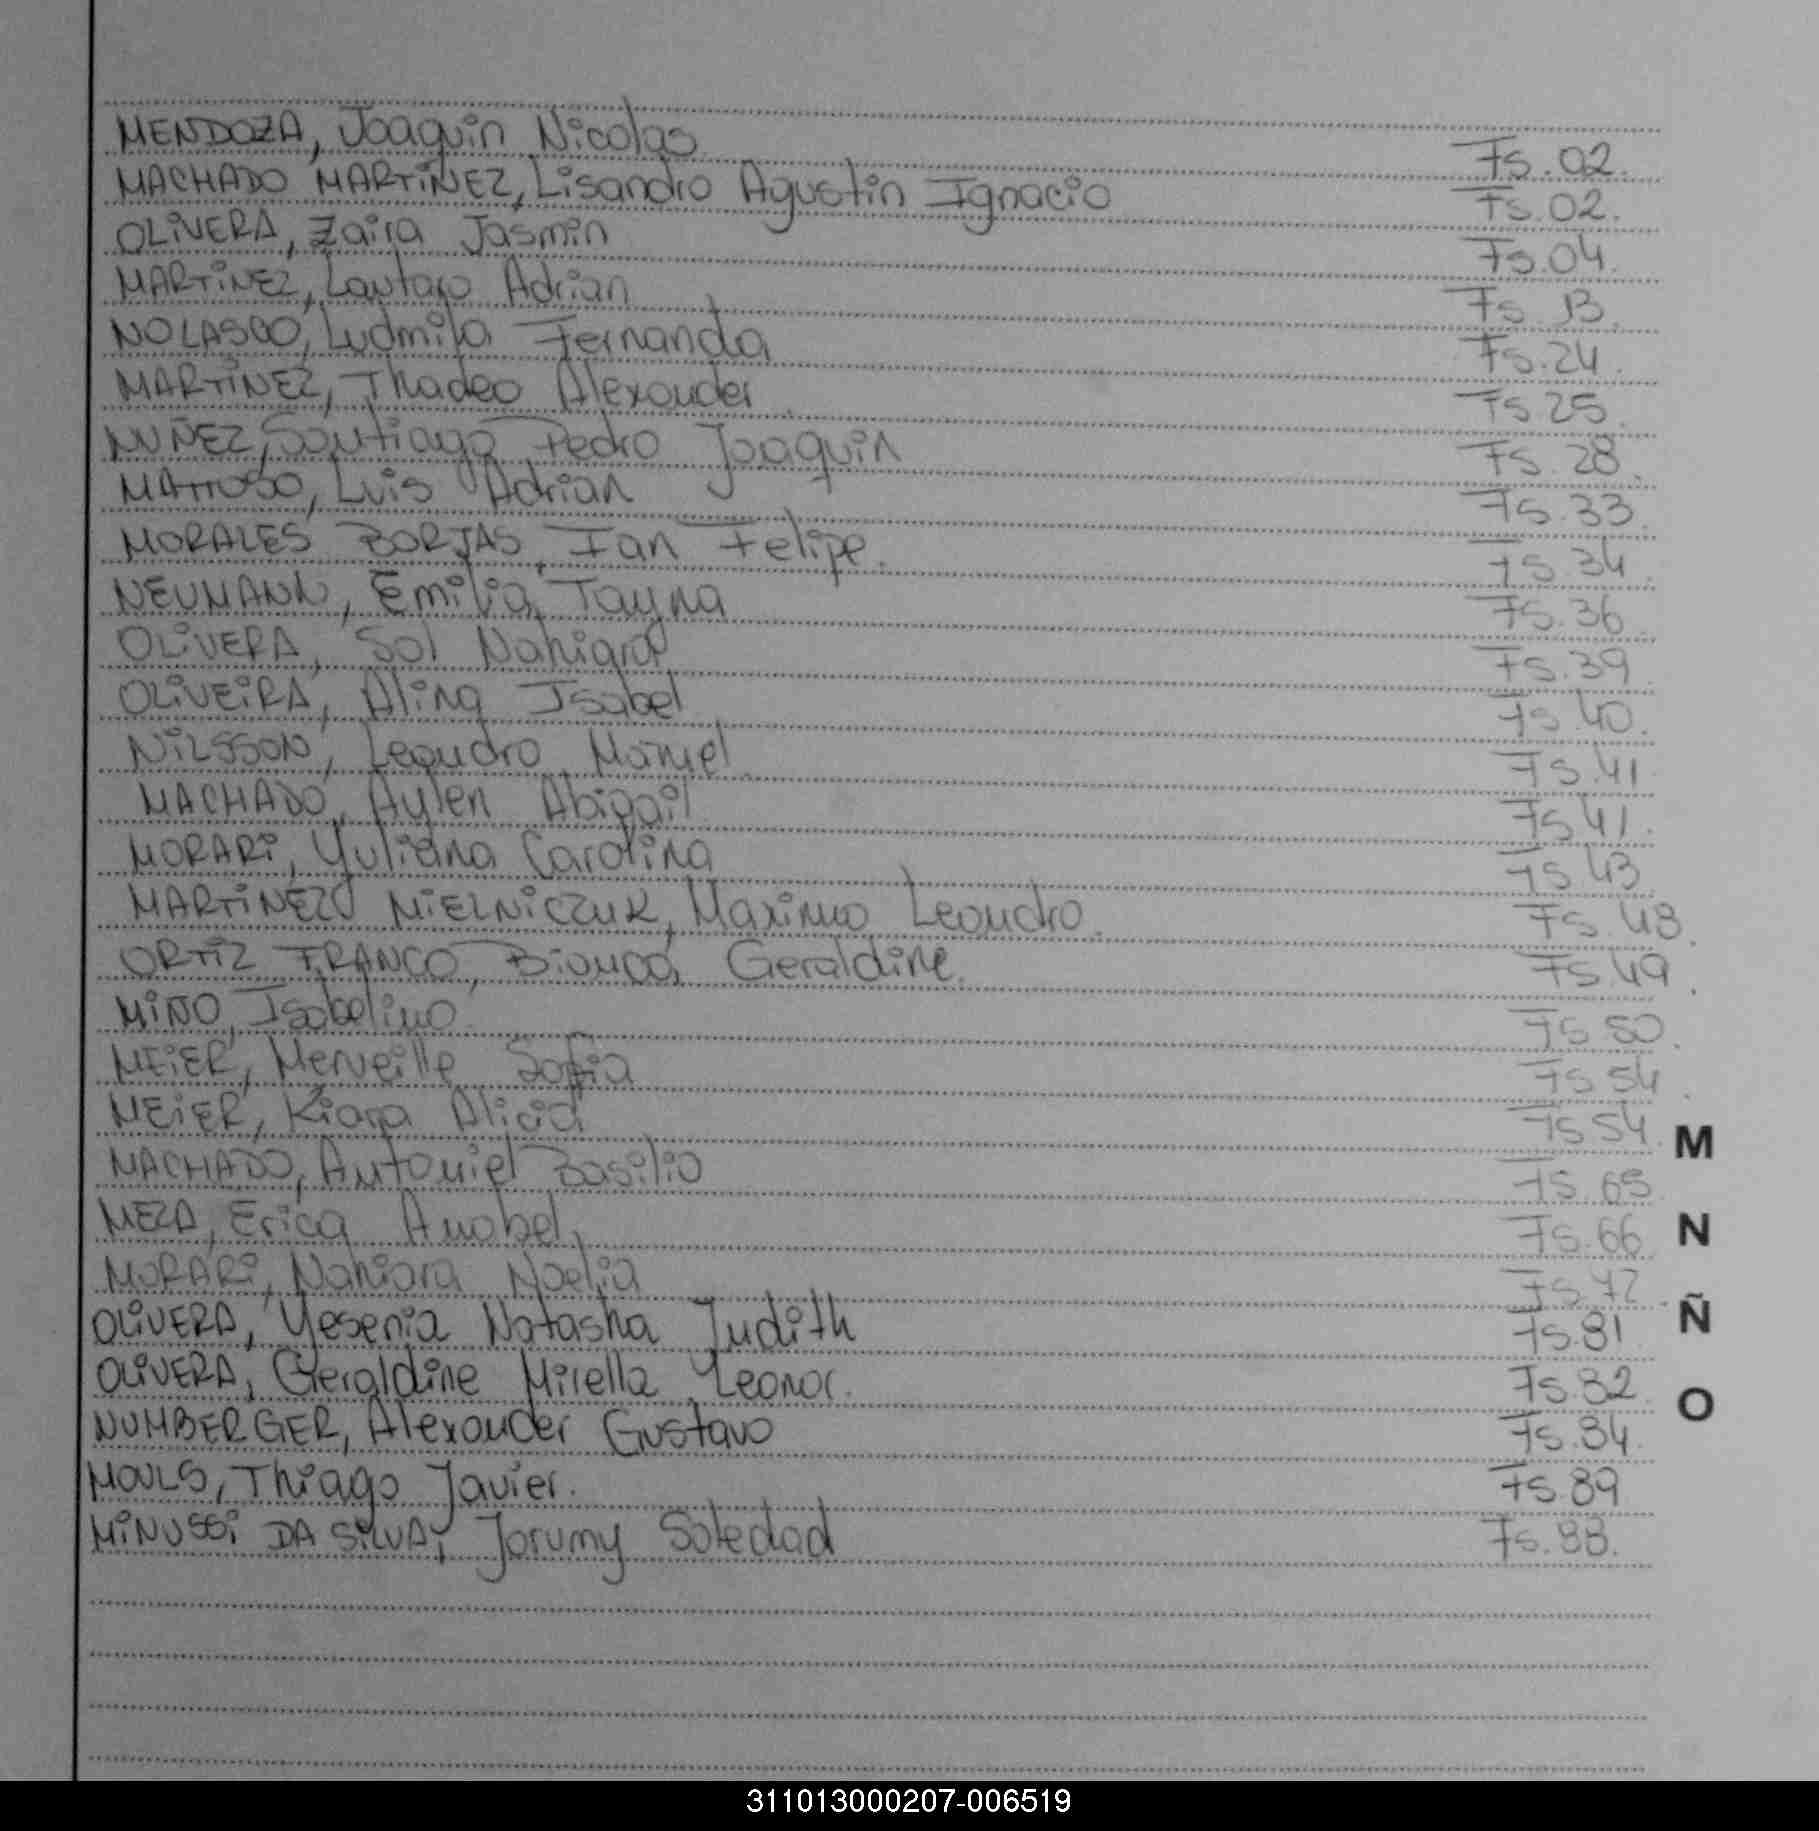 MENDOZA, Joaquin Nicolas Fs. 02.
MACHADO MARTÍNEZ, Lisandro Agustin Ignacio Fs. 02.
OLIVERA, Zaira Jasmin Fs. 04.
MARTINEZ, Lautaro Adrian Fs. 13.
NOLASCO, Ludmila Fernanda Fs. 24.
MARTÍNEZ, Thadeo Alexander Fs. 25.
NUÑEZ, Santiago Pedro Joaquin Fs. 28.
MATTOSO, Luis Adrian Fs. 33.
MORALES BORJAS, Ian Felipe. Fs. 34.
NEUMANN, Emilia Tayna Fs. 36.
OLIVERA, Sol Nahiara Fs. 39.
OLIVEIRA, Alina Isabel Fs. 40.
NILSSON, Leandro Manuel Fs. 41.
MACHADO, Aylen Abigail Fs 41.
MORARI, Yuliana Carolina Fs 43.
MARTINEZ MIELNICZUK, Maximo Leandro. Fs. 48.
ORTIZ FRANCO, Bianca Geraldine. Fs. 49.
MIÑO, Isabelino. Fs 50.
MEIER, Merveille Sofia Fs 54.
MEIER, Kiara Alicia Fs 54.
MACHADO, Antoniel Basilio Fs. 65.
MEZA, Erica Anabel, Fs. 66.
MORARI, Nahiara Noelia Fs. 72.
OLIVERA, Yesenia Natasha Judith Fs. 81.
OLIVERA, Geraldine Mirella Leonor. Fs. 82.
NUMBERGER, Alexander Gustavo Fs. 84.
MOULS, Thiago Javier. Fs. 89
MINUSSI DA SILVA, Jorumy Soledad Fs. 88.
M
N
Ñ
O
311013000207-006519